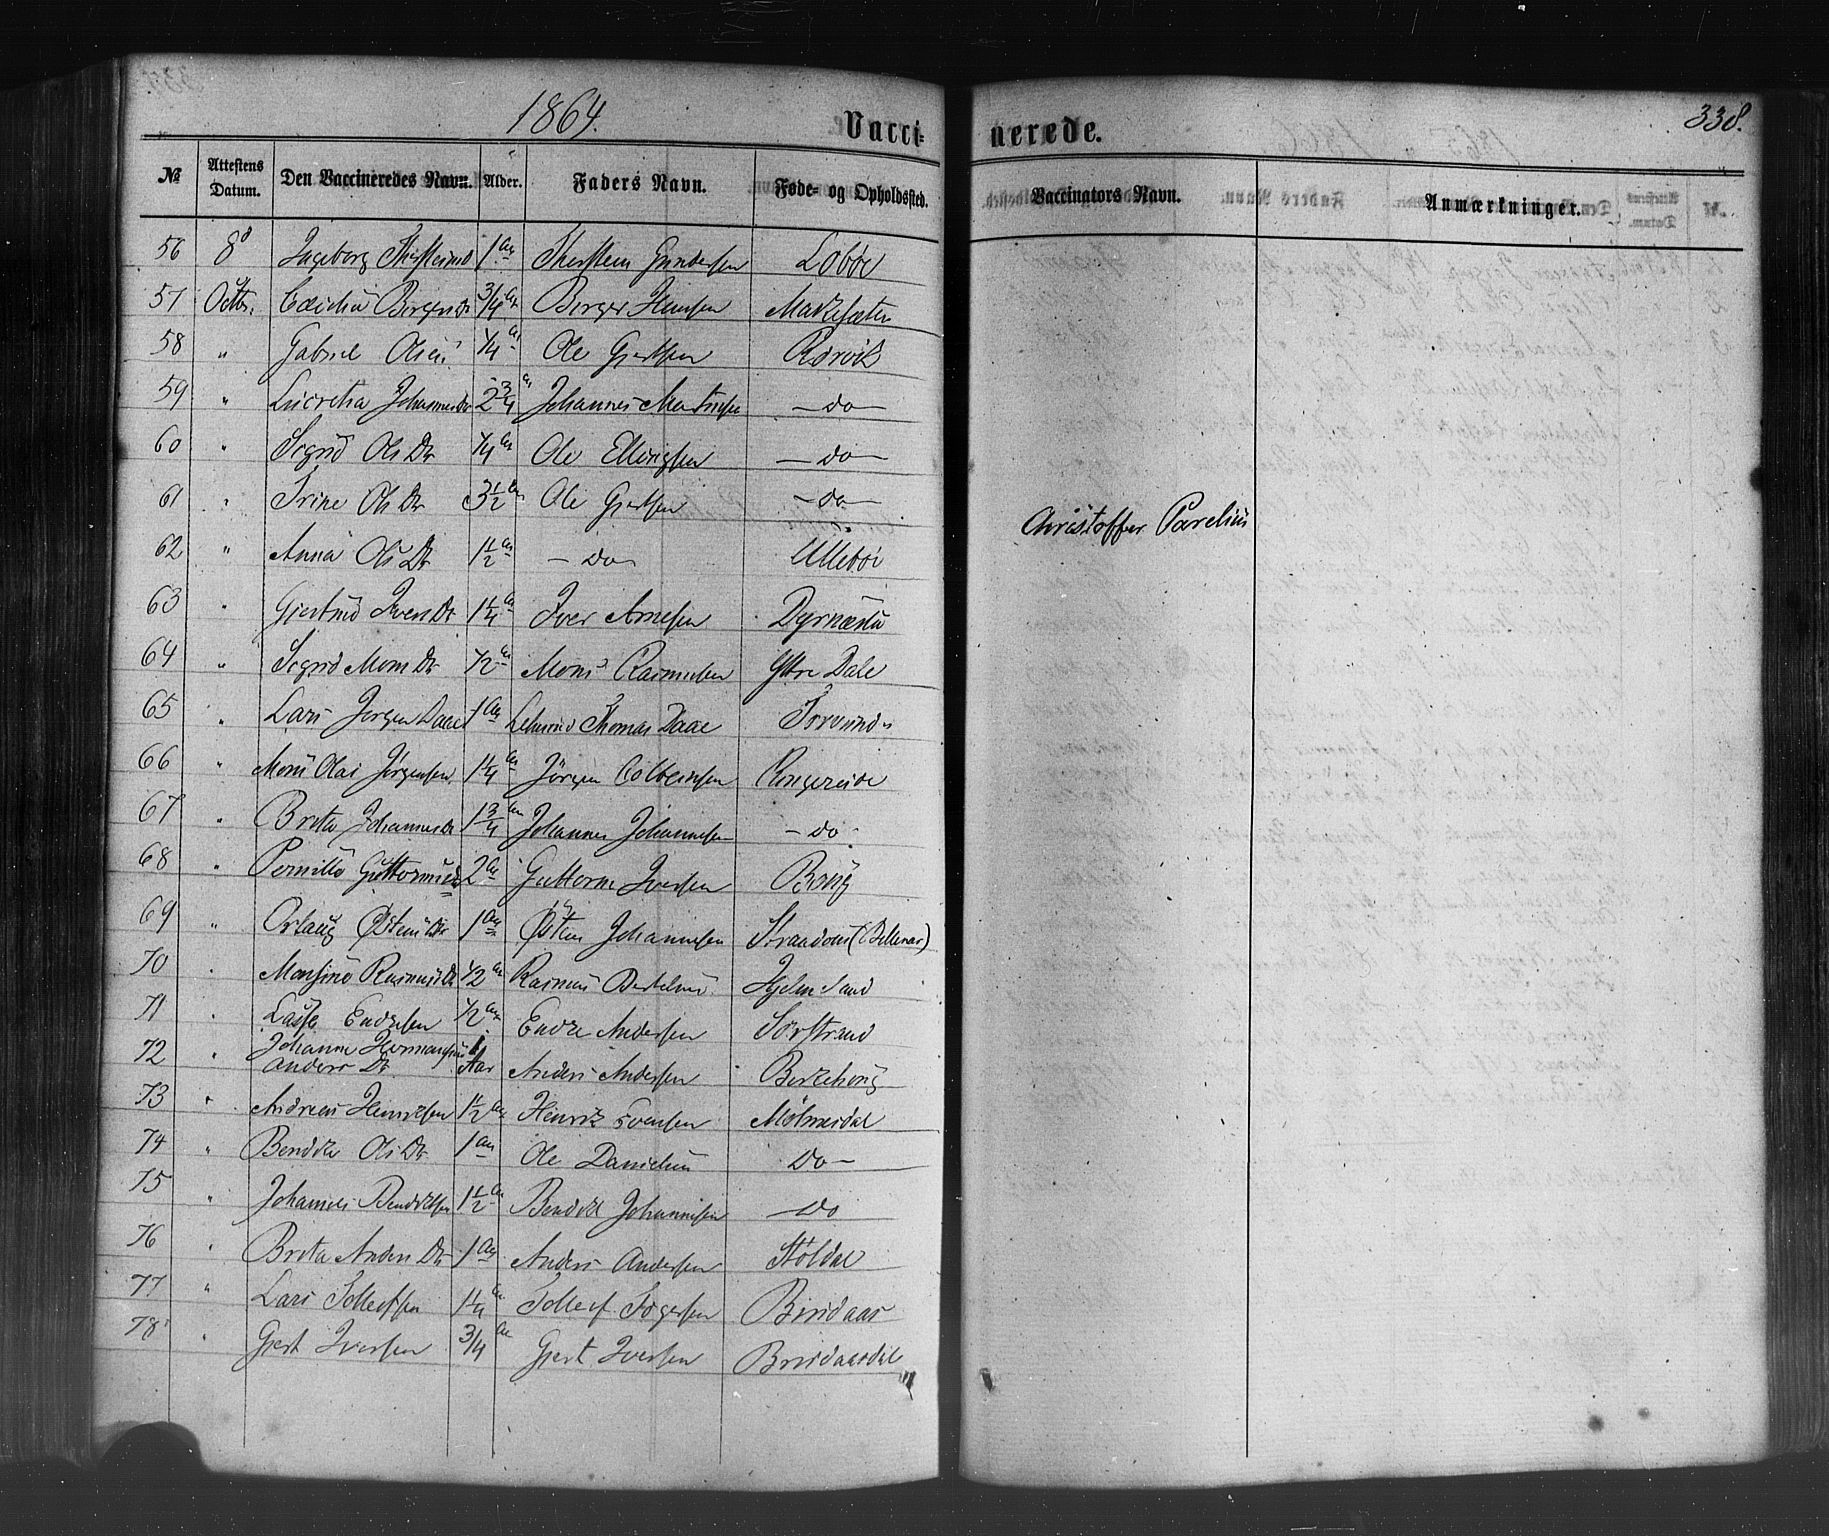 1864.
Vacci-
nerede.
338.
№ Attestens Datum. Den Vaccineredes Navn. Alder. Faders Navn. Føde- og Opholdssted.
Vaccinators Navn. Anmærkninger.
56 8d Ingeborg Thorsteinsd 1 Aar Thorstein Gundersen Løbøe
57 Octbr. Cæcilia Børgesdr 3/4 Aar Børge Hansen
58 " Gabriel Olsen 1/4 Aar Ole Gjertsen Rørvik
59 " Lucretia Johannesdr 2 3/4 Aar Johannes -do-
60 " Sigrid Ols Dr 1/4 Aar Ole Ellingsen -do-
61 " Trine Ols Dr 3 1/2 Aar Ole Gjertsen -do-
Christoffer Parelius
62 " Anna Ols Dr 1 1/2 Aar -do- Ullebøe
63 " Giertrud Ivers Dr 1 1/4 Aar Iver Arnesen Dyrnæsli
64 " Sigrid Mons Dr 1/2 Aar Mons Rasmussen Yttre Dale
65 " Lars Jørgen Daae 1 Aar Thomas Daae
66 " Mons Olai Jørgensen 1 1/4 Aar Jörgen Colbeinsen Ringereide
67 " Brita Johannesdr 1 3/4 Aar Johannes Johannesen -do-
68 " Pernille Guttormsdr 2 Aar Guttorm Iversen
69 " Orlaug Østensdr 1 Aar Østen Johannesen
70 " Monsine Rasmusdr 1/2 Aar Rasmus Hjelmesand
71 " Lasse Endresen 1/2 Aar Endre Andersen Sörstrand
72 " Johanne
Anders Dr 1 Aar Anders Andersen
73 " Andreas Henriksen 1 1/2 Aar Henrik Svensen Mölmesdal
74 " Bendikte Ols Dr 1 Aar Ole Danielsen Do-
75 " Johannes Bendiktsen 1 1/2 Aar Bendikt Johannesen -Do
76 " Brita Anders Dr 1 Aar Anders Andersen Støldal
77 " Lars Tollefsen 1 1/4 Aar Tollef
78 " Gjert Iversen 3/4 Aar Gjert Iversen